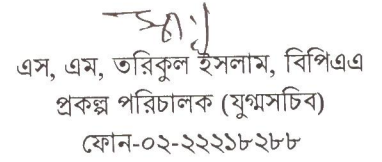 এস, এম, তরিকুল ইসলাম, বিপিএএ
প্রকল্প পরিচালক (যুগ্মসচিব)
ফোন-০২-২২২১৮২৮৮